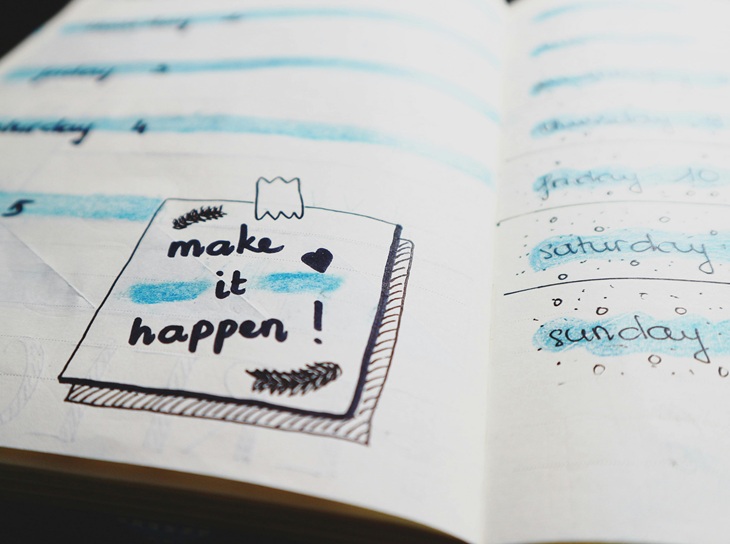 friday 3
turday 4
5
make
it
happen !
friday 10
saturday
sunday